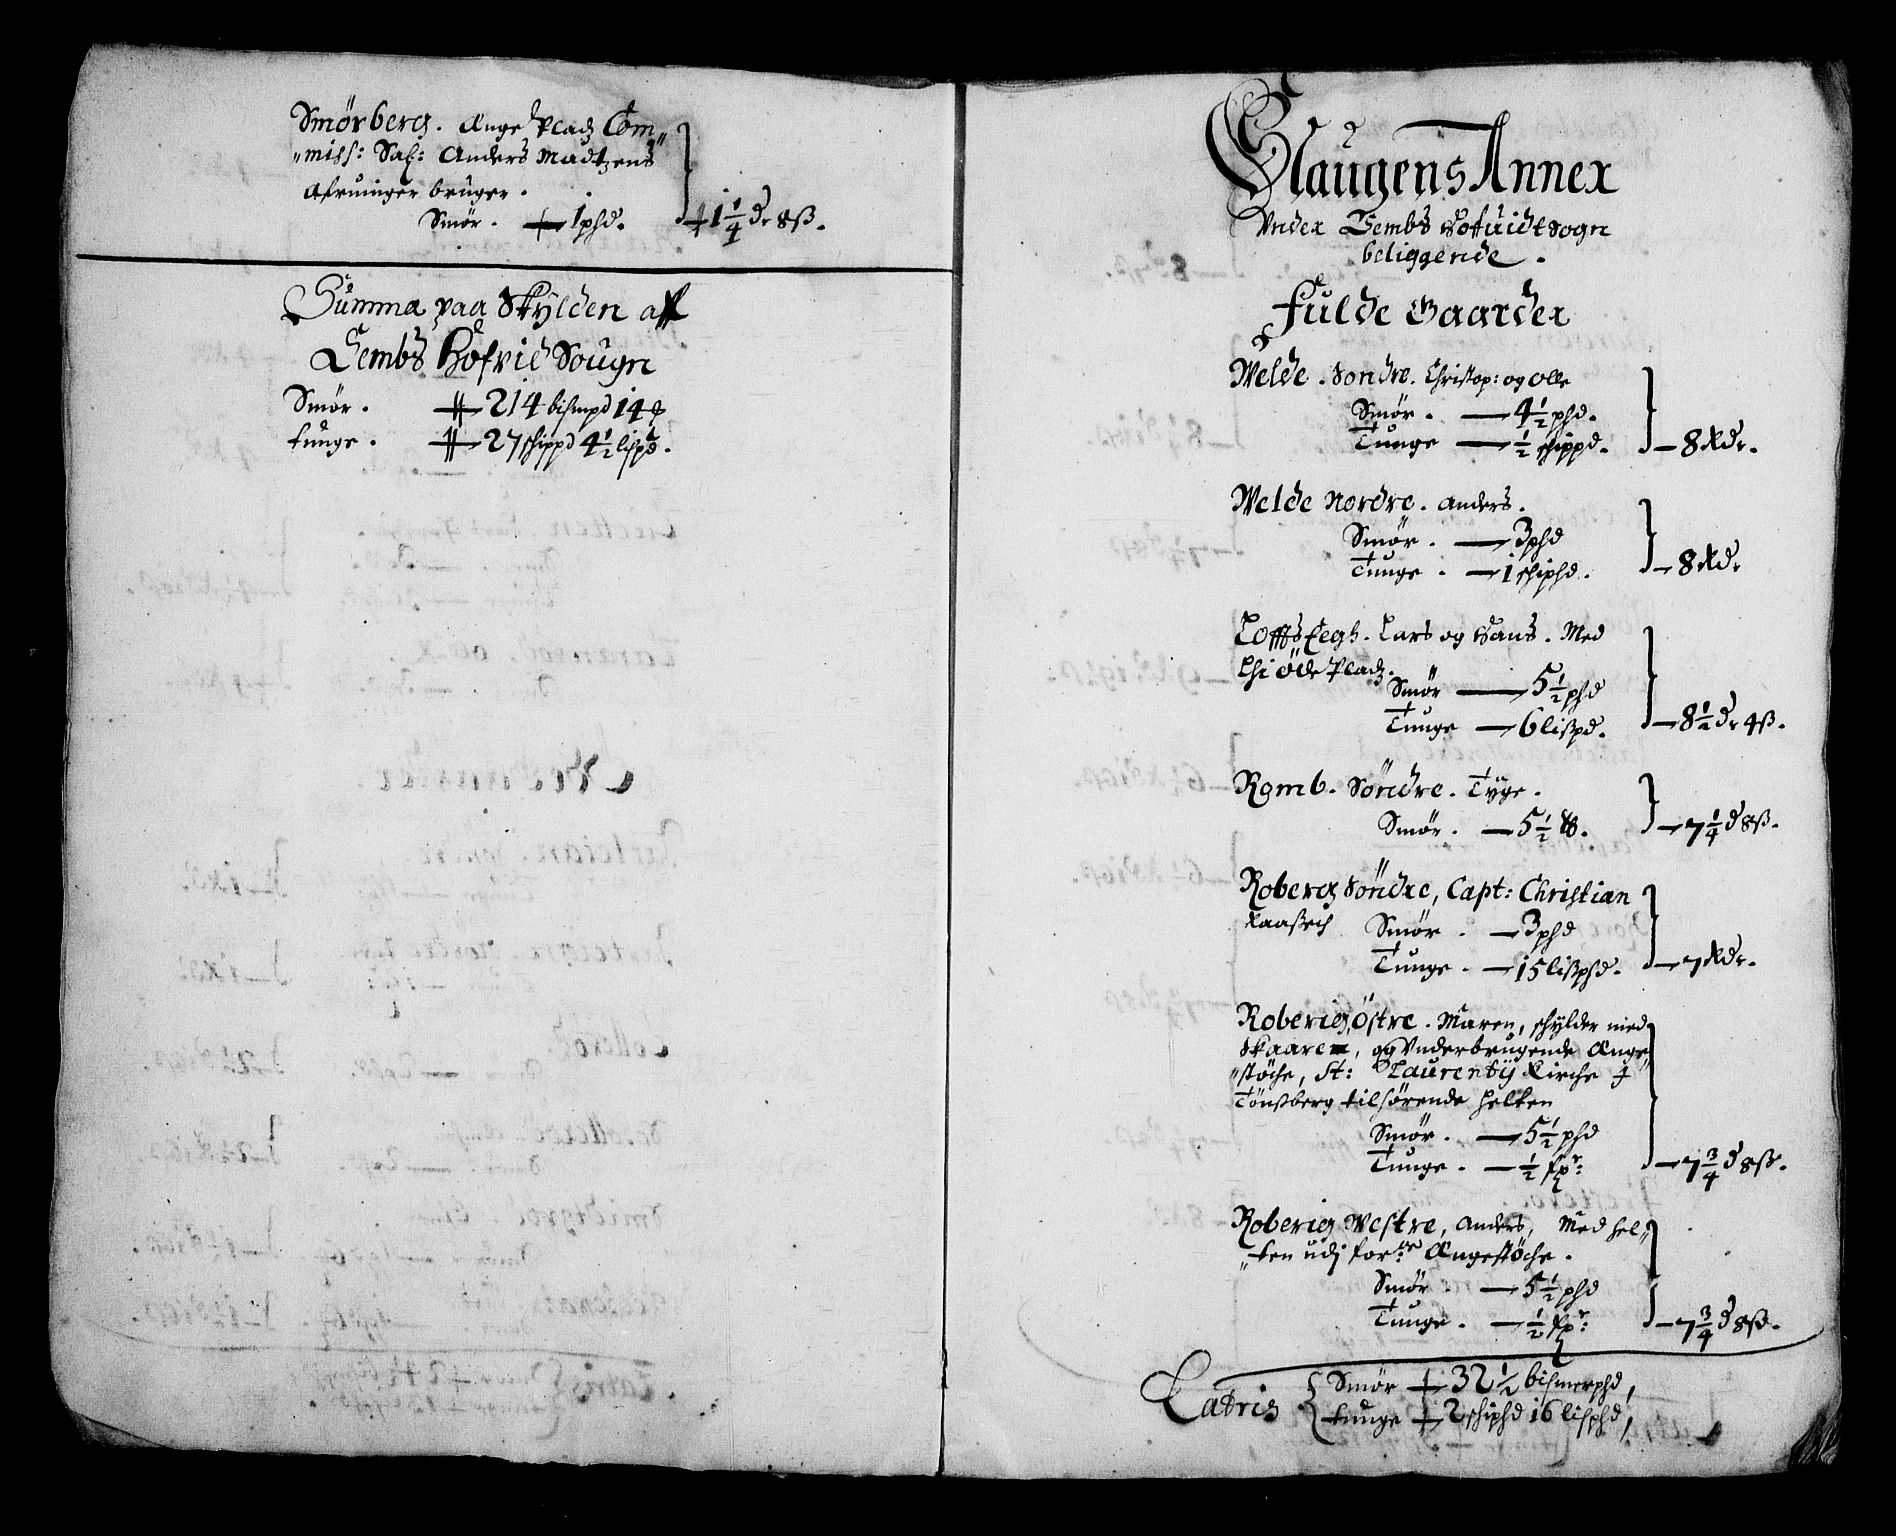 Smörberg. Ænge Pladz Com„
„miss: Sal: Anders Madtzens
Afruinger bruger.
Smör. 1 phd. 1¼ dr 8ß.
Summa paa Skylden aff
Sembs Hofvid Sougn
Smör. 214 bismpd 14
tunge. 27 schippd 4½ lispd.
Slaugens Annex
Vnder Sembs Hofuidt Sogn
beliggende.
Fulde Gaarder
Welde. Söndre. Christop: og Olle
Smör. 4½ phd.
Tunge ½ schippd. 8 Rdr.
Welde Nordre. Anders.
Smör. 3 phd
Tunge. 1 schiphd. 8 Rdr
Loffs Eegh. Lars og Hans. Med
Ehi öde Pladz.
Smör 5½ phd
Tunge 6 lißpd. 8½ dr 4ß.
Ramb. Söndre. Tyge.
Smör. 5½ 7¼ d 8ß.
Roberg Söndre, Capt: Christian
Raaßech Smör. 3 phd
Tunge. 15 lißphd. 7 Rdr.
Roberig Östre. Maren, schylder med
Skaaren, og Vnderbrugende Ænge„
„stöche, St: Laurentij Kirche J
Tönßberg tilhörende helten
Smör. 5½ phd
Tunge. ½ fpr: 7¾ d 8ß.
Roberig Westre, Anders, Med hel„
„ten udj forne Ængestöche.
Smör. 5½ phd
Tunge. ½ fpr: 7¾ d 8ß.
Latris Smör 32½ bismerphd,
tunge 2 schiphd 16 lisphd,